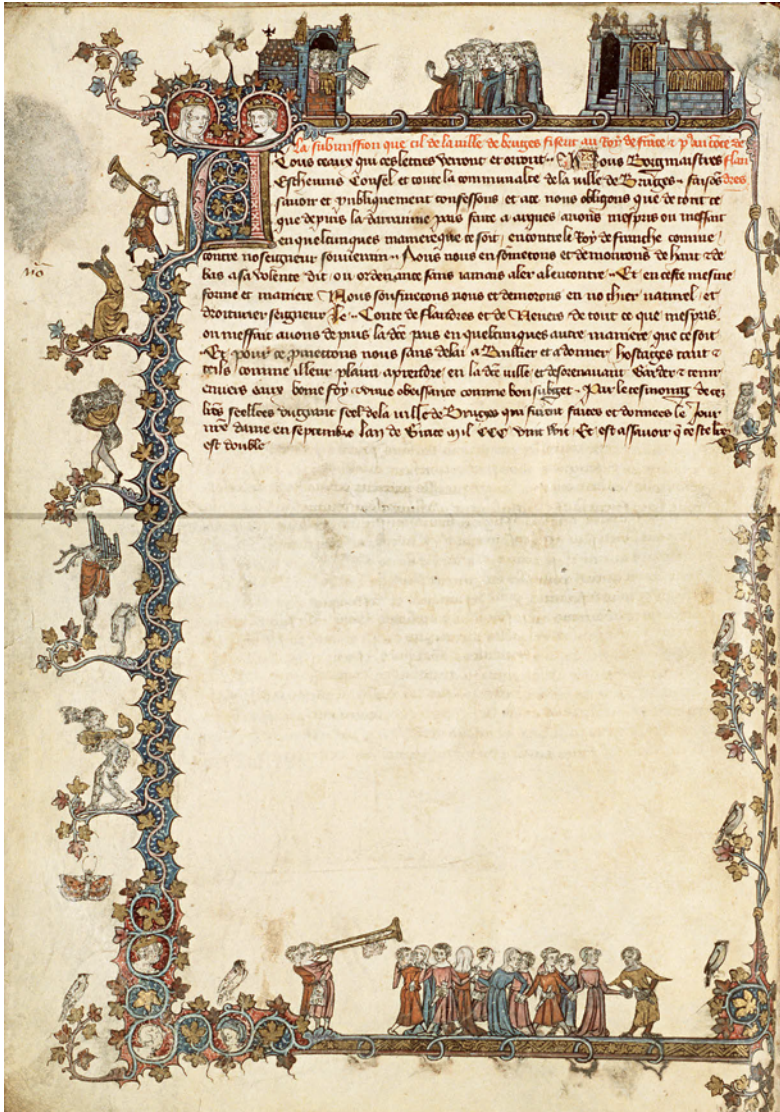 La submission que cil de la ville de bruges fisent au Roy de france ⁊ pͬ au cōte de
flan
dres
Tous ceaux qui ces lettres veront et oiront Nous Borgmaistres
Eschevins Consel et toute la communalte de la ville de Bruges faisōs
savoir et publiquement confessons et ace nous obligons que de tout ce
que depuis la darraine pais faite a arques avons mespris ou meffait
en quelcunques maniere que ce soit encontre le Roy de franche comme
contre no seigneur souverain Nous nous en soumetons et demorons de haut ⁊ de
bas a sa volente dit ou ordenance sans iamais aler alencontre Et en ceste mesme
forme et maniere Nous sousmetons nous et demorons en no chier naturel et
droiturier seigneur le Conte de flandres et de Nevers de tout ce que mespris
ou meffait avons depuis la dce pais en quelcunques autre maniere que ce soit
Et pour ce prometons nous sans delai a Baillier et a donner hostages tant ⁊
teils comme il leur plaira aprendre en la dce ville et desorenavant Garder ⁊ tenir
envers eaux bonne foy ⁊ vraie obeissance comme bon subget Par le tesmoing de cez
lr̄es seellees du grant seel de la ville de Bruges qui furent faites et donnees le Jour
nr̄e dame en septembre lan de Grace mil CCC vint wit Et est assavoir q̄ ceste lr̄e
est double